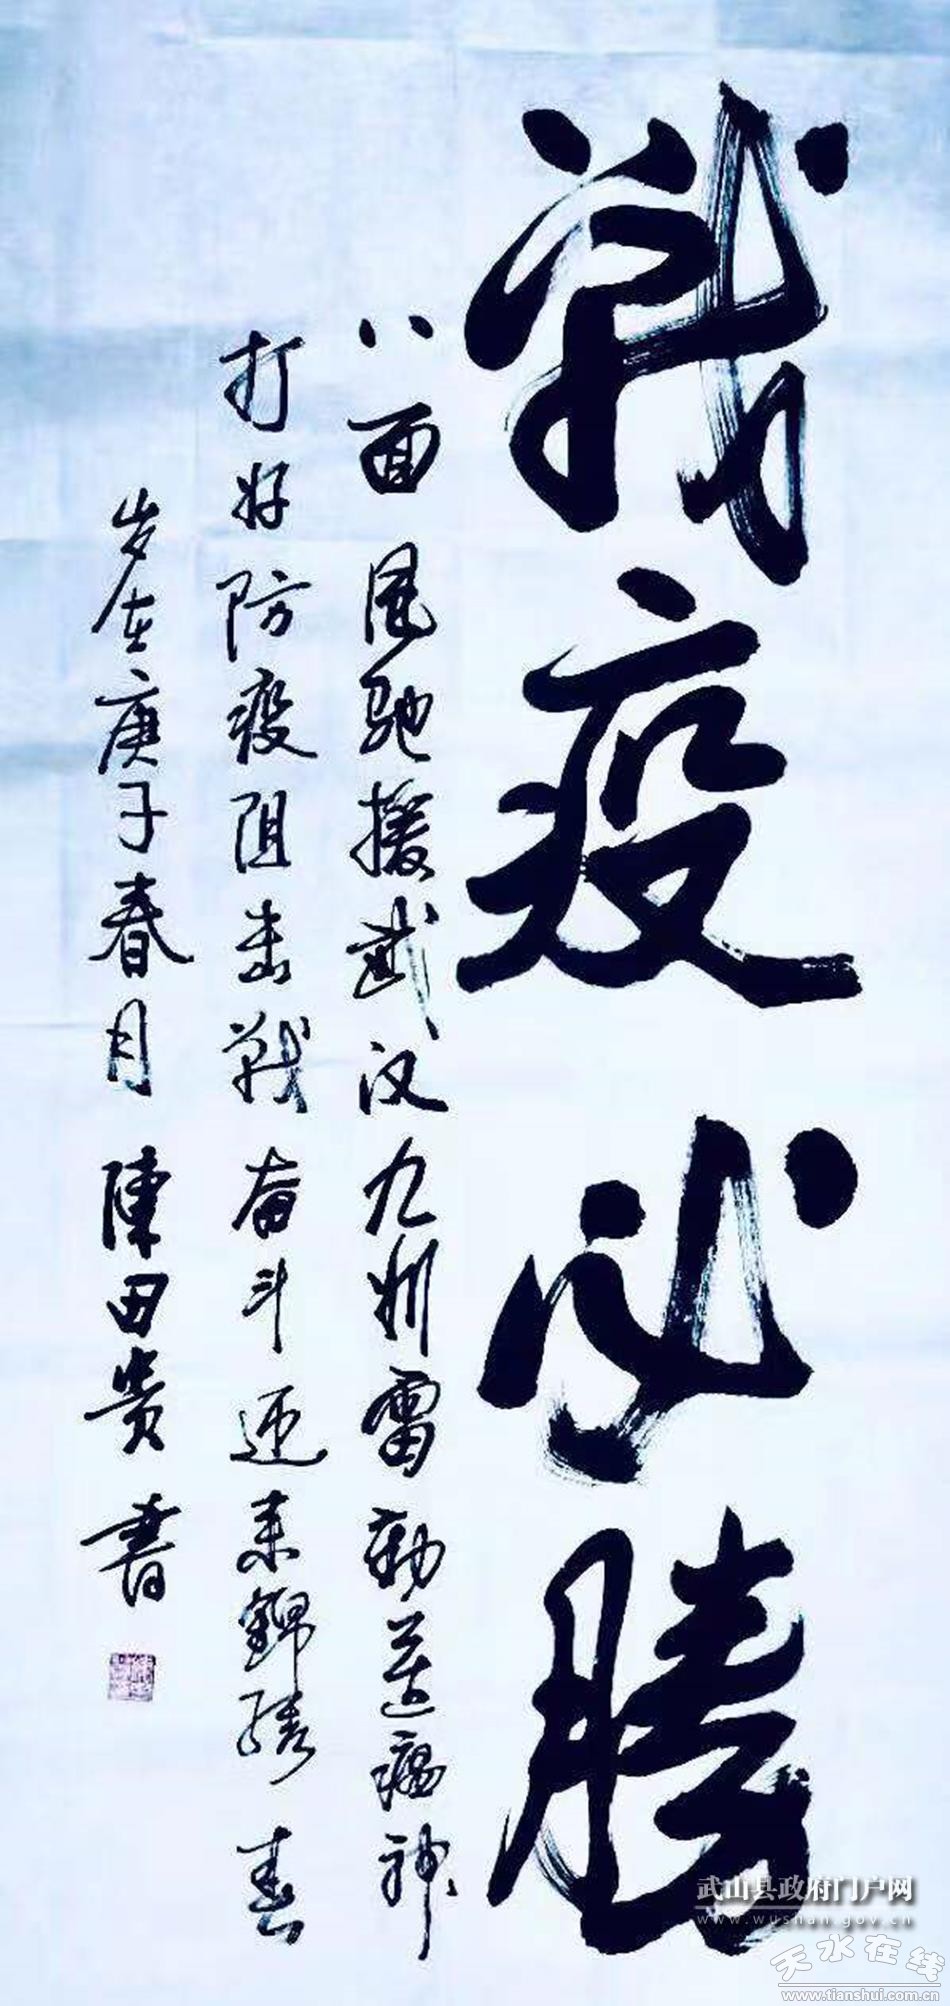 戰疫必勝
八面风驰援武汉九州雷動送瘟神
打好防疫阻击戰奋斗迎来錦绣春
岁在庚子春月陳田贵書
武山县政府门户网
www.wushan.gov.cn
天水在线
www.tianshui.com.cn